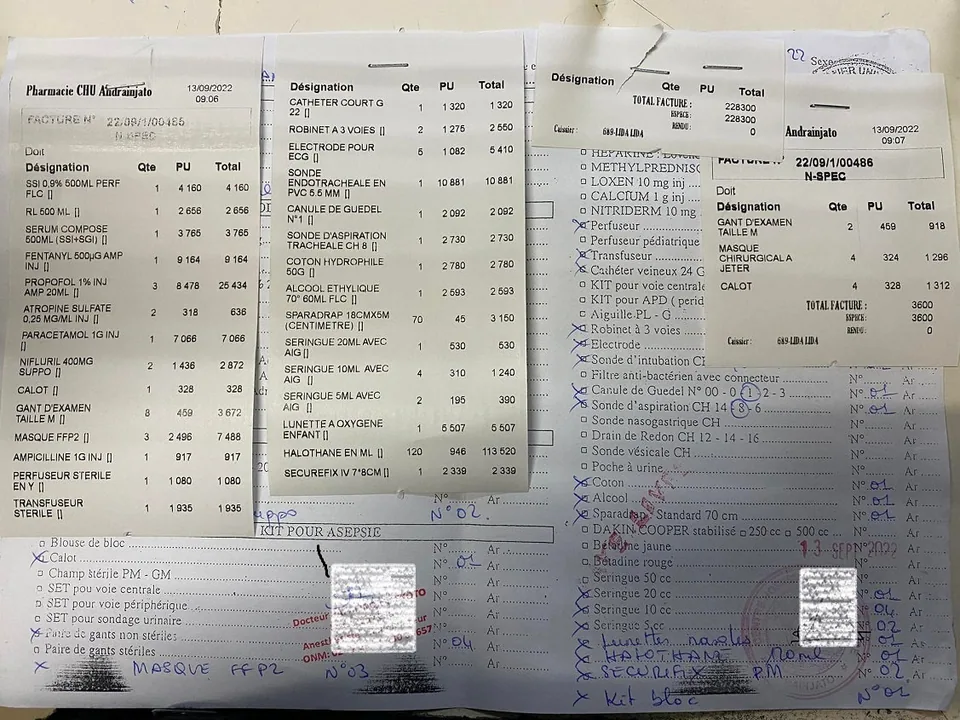 Pharmacie CHU Andrainjato
13/09/2022
09:06
FACTURE N° 22/09/1/00485
N-SPEC
Doit
Désignation Qte PU Total
SSI 0,9% 500ML PERF
FLC [] 1 4 160 4 160
RL 500 ML [] 1 2 656 2 656
SERUM COMPOSE
500ML (SSI+SGI) [] 1 3 765 3 765
FENTANYL 500µG AMP
INJ [] 1 9 164 9 164
PROPOFOL 1% INJ
AMP 20ML [] 3 8 478 25 434
ATROPINE SULFATE
0,25 MG/ML INJ [] 2 318 636
PARACETAMOL 1G INJ
[] 1 7 066 7 066
NIFLURIL 400MG
SUPPO [] 2 1 436 2 872
CALOT [] 1 328 328
GANT D'EXAMEN
TAILLE M [] 8 459 3 672
MASQUE FFP2 [] 3 2 496 7 488
AMPICILLINE 1G INJ [] 1 917 917
PERFUSEUR STERILE
EN Y [] 1 1 080 1 080
TRANSFUSEUR
STERILE [] 1 1 935 1 935
Désignation Qte PU Total
CATHETER COURT G
22 [] 1 1 320 1 320
ROBINET A 3 VOIES [] 2 1 275 2 550
ELECTRODE POUR
ECG [] 5 1 082 5 410
SONDE
ENDOTRACHEALE EN
PVC 5.5 MM [] 1 10 881 10 881
CANULE DE GUEDEL
N°1 [] 1 2 092 2 092
SONDE D'ASPIRATION
TRACHEALE CH 8 [] 1 2 730 2 730
COTON HYDROPHILE
50G [] 1 2 780 2 780
ALCOOL ETHYLIQUE
70° 60ML FLC [] 1 2 593 2 593
SPARADRAP 18CMX5M
(CENTIMETRE) [] 70 45 3 150
SERINGUE 20ML AVEC
AIG [] 1 530 530
SERINGUE 10ML AVEC
AIG [] 4 310 1 240
SERINGUE 5ML AVEC
AIG [] 2 195 390
LUNETTE A OXYGENE
ENFANT [] 1 5 507 5 507
HALOTHANE EN ML [] 120 946 113 520
SECUREFIX IV 7*8CM [] 1 2 339 2 339
Désignation Qte PU Total
TOTAL FACTURE : 228300
ESPECE : 228300
RENDU : 0
Caissier : 689-LIDA LIDA
22 Sexe
Andrainjato 13/09/2022
09:07
FACTURE N° 22/09/1/00486
N-SPEC
Doit
Désignation Qte PU Total
GANT D'EXAMEN
TAILLE M 2 459 918
MASQUE
CHIRURGICAL A
JETER 4 324 1 296
CALOT 4 328 1 312
TOTAL FACTURE : 3600
ESPECE : 3600
RENDU : 0
Caissier : 689-LIDA LIDA
METHYLPREDNISC
LOXEN 10 mg inj
CALCIUM 1 g inj
NITRIDERM 10 mg
Perfuseur
Perfuseur pédiatrique
Transfuseur
Cathéter veineux 24 G
KIT pour voie centrale
KIT pour APD ( perid
Aiguille PL - G
Robinet à 3 voies
Electrode
Sonde d'intubation CH
Filtre anti-bactérien avec connecteur N° Ar
Canule de Guedel N° 00 - 0 - 1 - 2 - 3 N° 01 Ar
Sonde d'aspiration CH 14 - 8 - 6 N° 01 Ar
Sonde nasogastrique CH
Drain de Redon CH 12 - 14 - 16
Sonde vésicale CH
Poche à urine
Coton N° 01 Ar
Alcool N° 01 Ar
Sparadrap Standard 70 cm N° 01 Ar
DAKIN COOPER stabilisé 250 cc 500 cc
Bétadine jaune
Bétadine rouge
Seringue 50 cc
Seringue 20 cc 01 Ar
Seringue 10 cc 04 Ar
Seringue 5 cc 02 Ar
Lunettes nasales 01
HALOTHANE 01
SECUREFIX PM 02
Kit bloc N° 01
13 SEPT 2022
suppo N° 02
KIT POUR ASEPSIE
Blouse de bloc N° Ar
Calot N° 01 Ar
Champ stérile PM - GM N° Ar
SET pou voie centrale
SET pour voie périphérique
SET pour sondage urinaire
Paire de gants non stériles N° 04 Ar
Paire de gants stériles N° Ar
MASQUE FFP2 N° 03
Docteur